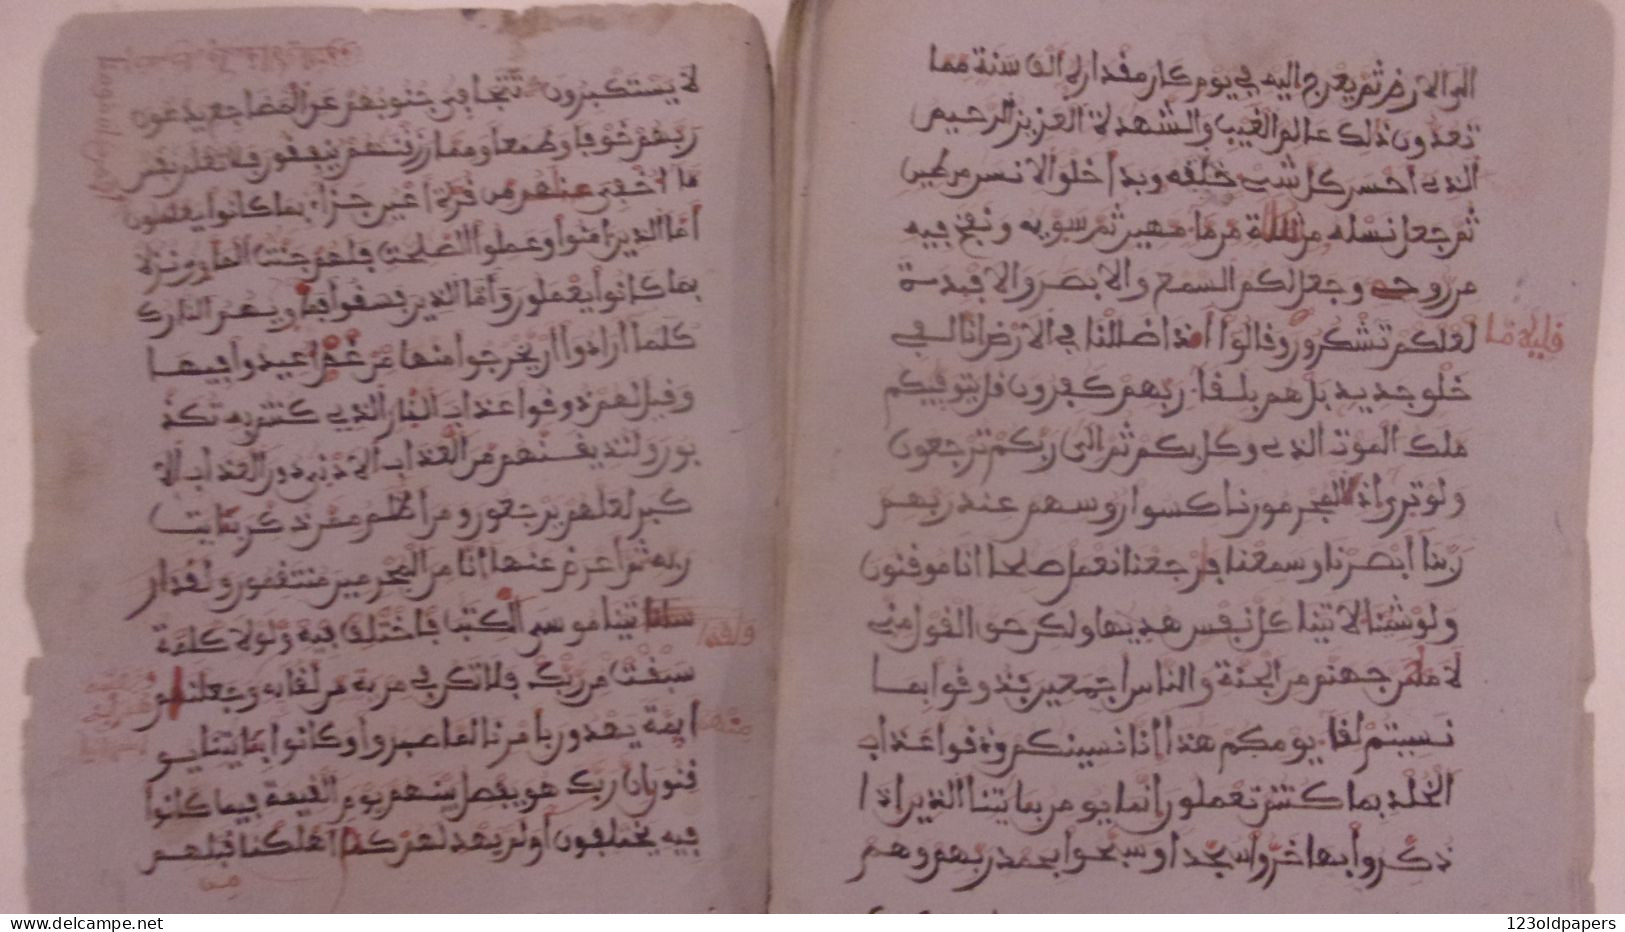 الى الارض ثم يعرج اليه في يوم كان مقداره الف سنة مما
تعدون ذلك عالم الغيب والشهدة العزيز الرحيم
الذي احسن كل شيء خلقه وبدا خلق الانسن من طين
ثم جعل نسله من سللة من ما مهين ثم سويه ونفخ فيه
من روحه وجعل لكم السمع والابصر والافيدة
لعلكم تشكرون وقالوا أ.ذا ضللنا في الارض انا لفي
قليلا ما
خلق جديد بل هم بلقا ربهم كفرون قل يتوفيكم
ملك الموت الذي وكل بكم ثم الى ربكم ترجعون
ولو ترى اذ المجرمون ناكسوا روسهم عند ربهم
ربنا ابصرنا وسمعنا فارجعنا نعمل صلحا انا موقنون
ولو شئنا لاتينا كل نفس هديها ولكن حق القول مني
لاملن جهنم من الجنة والناس اجمعين فذوقوا بما
نسيتم لقا يومكم هذا انا نسينكم وذوقوا عذاب
الخلد بما كنتم تعملون انما يومن بايتنا الذين اذا
ذكروا بها خروا سجدا وسبحوا بحمد ربهم وهم
لا يستكبرون تتجافى جنوبهم عن المضاجع يدعون
ربهم خوفا وطمعا ومما رزقنهم ينفقون فلا تعلم نفس
ما اخفي لهم من قرة اعين جزاء بما كانوا يعملون
اما الذين امنوا وعملوا الصلحت فلهم جنت الماوى نزلا
بما كانوا يعملون واما الذين فسقوا فماويهم النار ك
كلما ارادوا ان يخرجوا منها من غم اعيدوا فيها
وقيل لهم ذوقوا عذاب النار الذي كنتم به تكذ
بون ولنذيقنهم من العذاب الادنى دون العذاب الا
كبر لعلهم يرجعون ومن اظلم ممن ذكر بايت
ربه ثم اعرض عنها انا من المجرمين منتقمون ولقد ار
سلنا تينا موسى الكتب فاختلف فيه ولولا كلمة
ولقد ا
سبقت من ربك فلا تكن في مرية من لقايه وجعلنهم
ايمة يهدون بامرنا لما صبروا وكانوا بايتنا يو
منهم
قنون ان ربك هو يفصل بينهم يوم القيمة فيما كانوا
فيه يختلفون اولم يهد لهم كم اهلكنا قبلهم
من
www.delcampe.net
123oldpapers